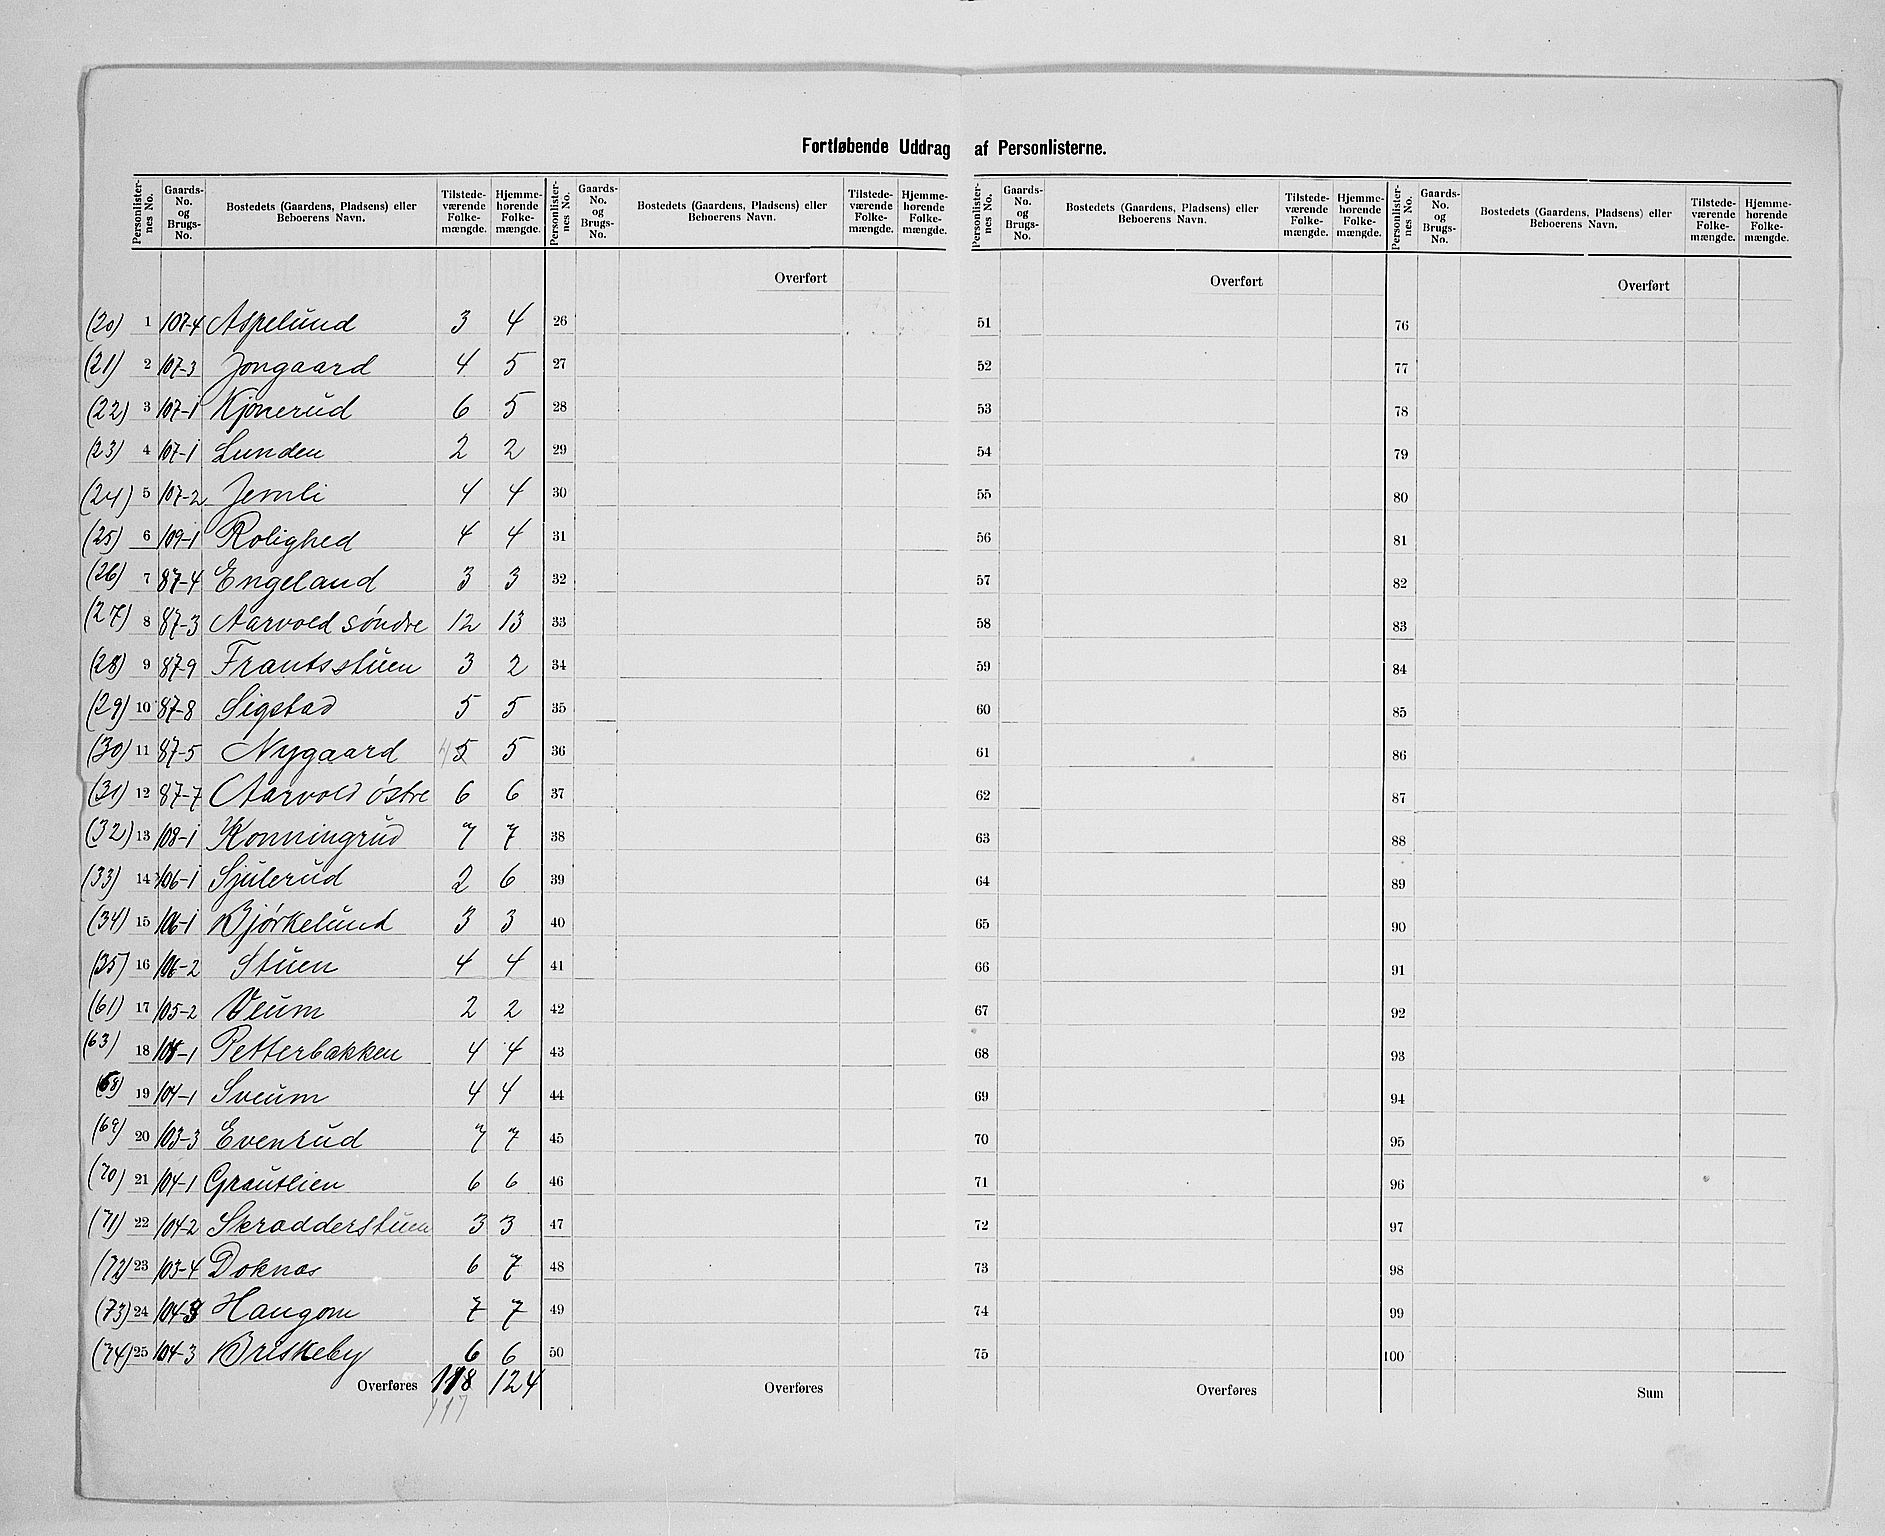 Fortløbende Uddrag af Personlisterne.
Personlister-nes No. Gaards-No. og Brugs-No. Bostedets (Gaardens, Pladsens) eller Beboerens Navn. Tilstede-værende Folke-mængde. Hjemme-hørende Folke-mængde. Personlister-nes No. Gaards-No. og Brugs-No. Bostedets (Gaardens, Pladsens) eller Beboerens Navn. Tilstede-værende Folke-mængde. Hjemme-hørende Folke-mængde. Personlister-nes No. Gaards-No. og Brugs-No. Bostedets (Gaardens, Pladsens) eller Beboerens Navn. Tilstede-værende Folke-mængde. Hjemme-hørende Folke-mængde. Personlister-nes No. Gaards-No. og Brugs-No. Bostedets (Gaardens, Pladsens) eller Beboerens Navn. Tilstede-værende Folke-mængde. Hjemme-hørende Folke-mængde.
Overført Overført Overført
(20) 1 107-4 Aspelund 3 4 26 51 76
(21) 2 107-3 Jongaard 4 5 27 52 77
(22) 3 107-1 Kjønerud 6 5 28 53 78
(23) 4 107-1 Lunden 2 2 29 54 79
(24) 5 107-2 Jemli 4 4 30 55 80
(25) 6 109-1 Rolighed 4 4 31 56 81
(26) 7 87-4 Engeland 3 3 32 57 82
(27) 8 87-3 Aarvold søndre 12 13 33 58 83
(28) 9 87-9 Frantsstuen 3 2 34 59 84
(29) 10 87-8 Sigstad 5 5 35 60 85
(30) 11 87-5 Nygaard 4 5 5 36 61 86
(31) 12 87-7 Aarvold østre 6 6 37 62 87
(32) 13 108-1 Konningrud 7 7 38 63 88
(33) 14 106-1 Sjulerud 2 6 39 64 89
(34) 15 106-1 Bjørkelund 3 3 40 65 90
(35) 16 106-2 Stuen 4 4 41 66 91
(61) 17 105-2 Veum 2 2 42 67 92
(63) 18 104-1 Petterbakken 4 4 43 68 93
(68) 19 104-1 Sveum 4 4 44 69 94
(69) 20 103-3 Evenrud 7 7 45 70 95
(70) 21 104-1 Grautlien 6 6 46 71 96
(71) 22 104-2 Skradderstuen 3 3 47 72 97
(72) 23 103-4 Doknas 6 7 48 73 98
(73) 24 104-3 Haugom 7 7 49 74 99
(74) 25 104-3 Briskeby 6 6 50 75 100
Overføres 118 124 Overføres Overføres Sum
117